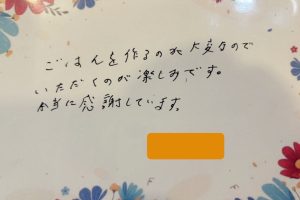 ごはんを作るのが大変なので
いただくのが楽しみです。
本当に感謝しています。